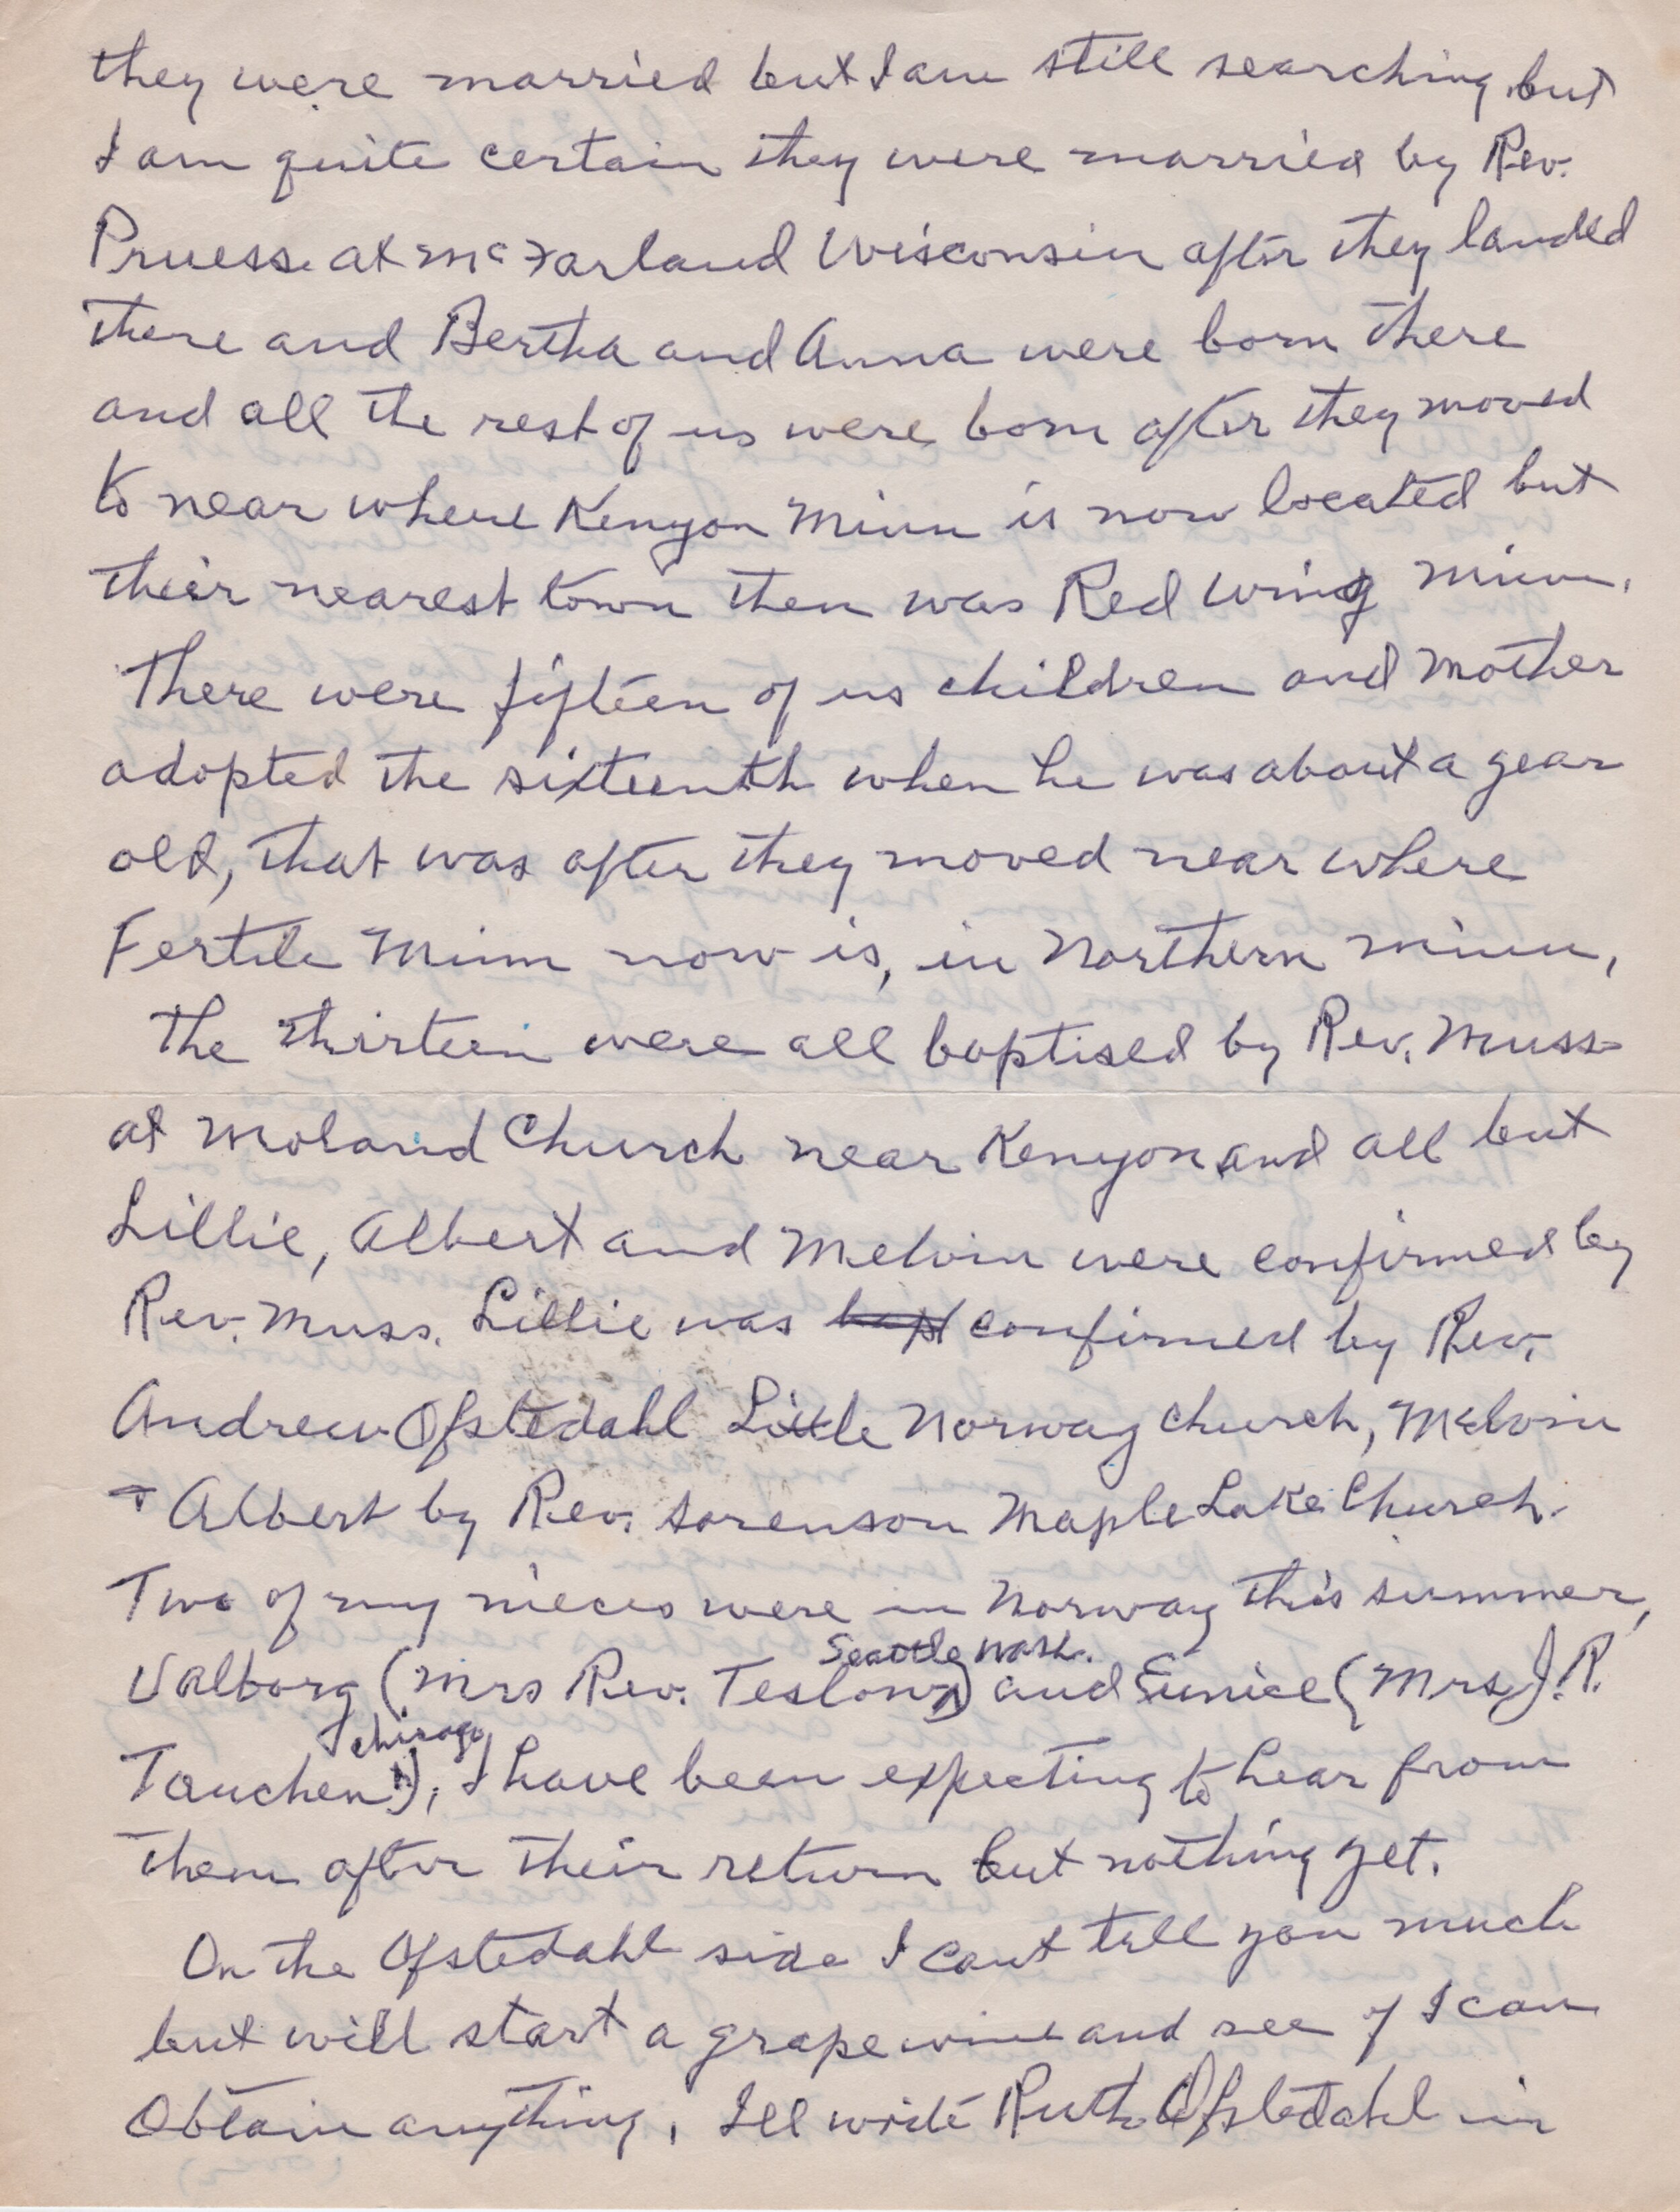 they were married but I am still searching, but
I am quite certain they were married by Rev.
Pruess at McFarland Wisconsin after they landed
there and Bertha and Anna were born there
and all the rest of us were born after they moved
to near where Kenyon Minn is now located but
their nearest town then was Red Wing Minn.
There were fifteen of us children and Mother
adopted the sixteenth when he was about a year
old, that was after they moved near where
Fertile Minn now is, in Northern Minn,
The thirteen were all baptised by Rev. Muss
at Moland Church near Kenyon and all but
Lillie, Albert and Melvin were confirmed by
Rev. Muss. Lillie was bapt confirmed by Rev.
Andrew Ofstedahl Little Norway church, Melvin
+ Albert by Rev. Sorenson Maple Lake Church.
Two of my nieces were in Norway this summer,
Seattle Wash.
Valborg (Mrs Rev. Teslow) and Eunice (Mrs J. R.
Chicago
Tauchen), I have been expecting to hear from
them after their return but nothing yet.
On the Ofstedahl side I cant tell you much
but will start a grapevine and see if I can
Obtain anything, Ill write Ruth Ofstedahl in